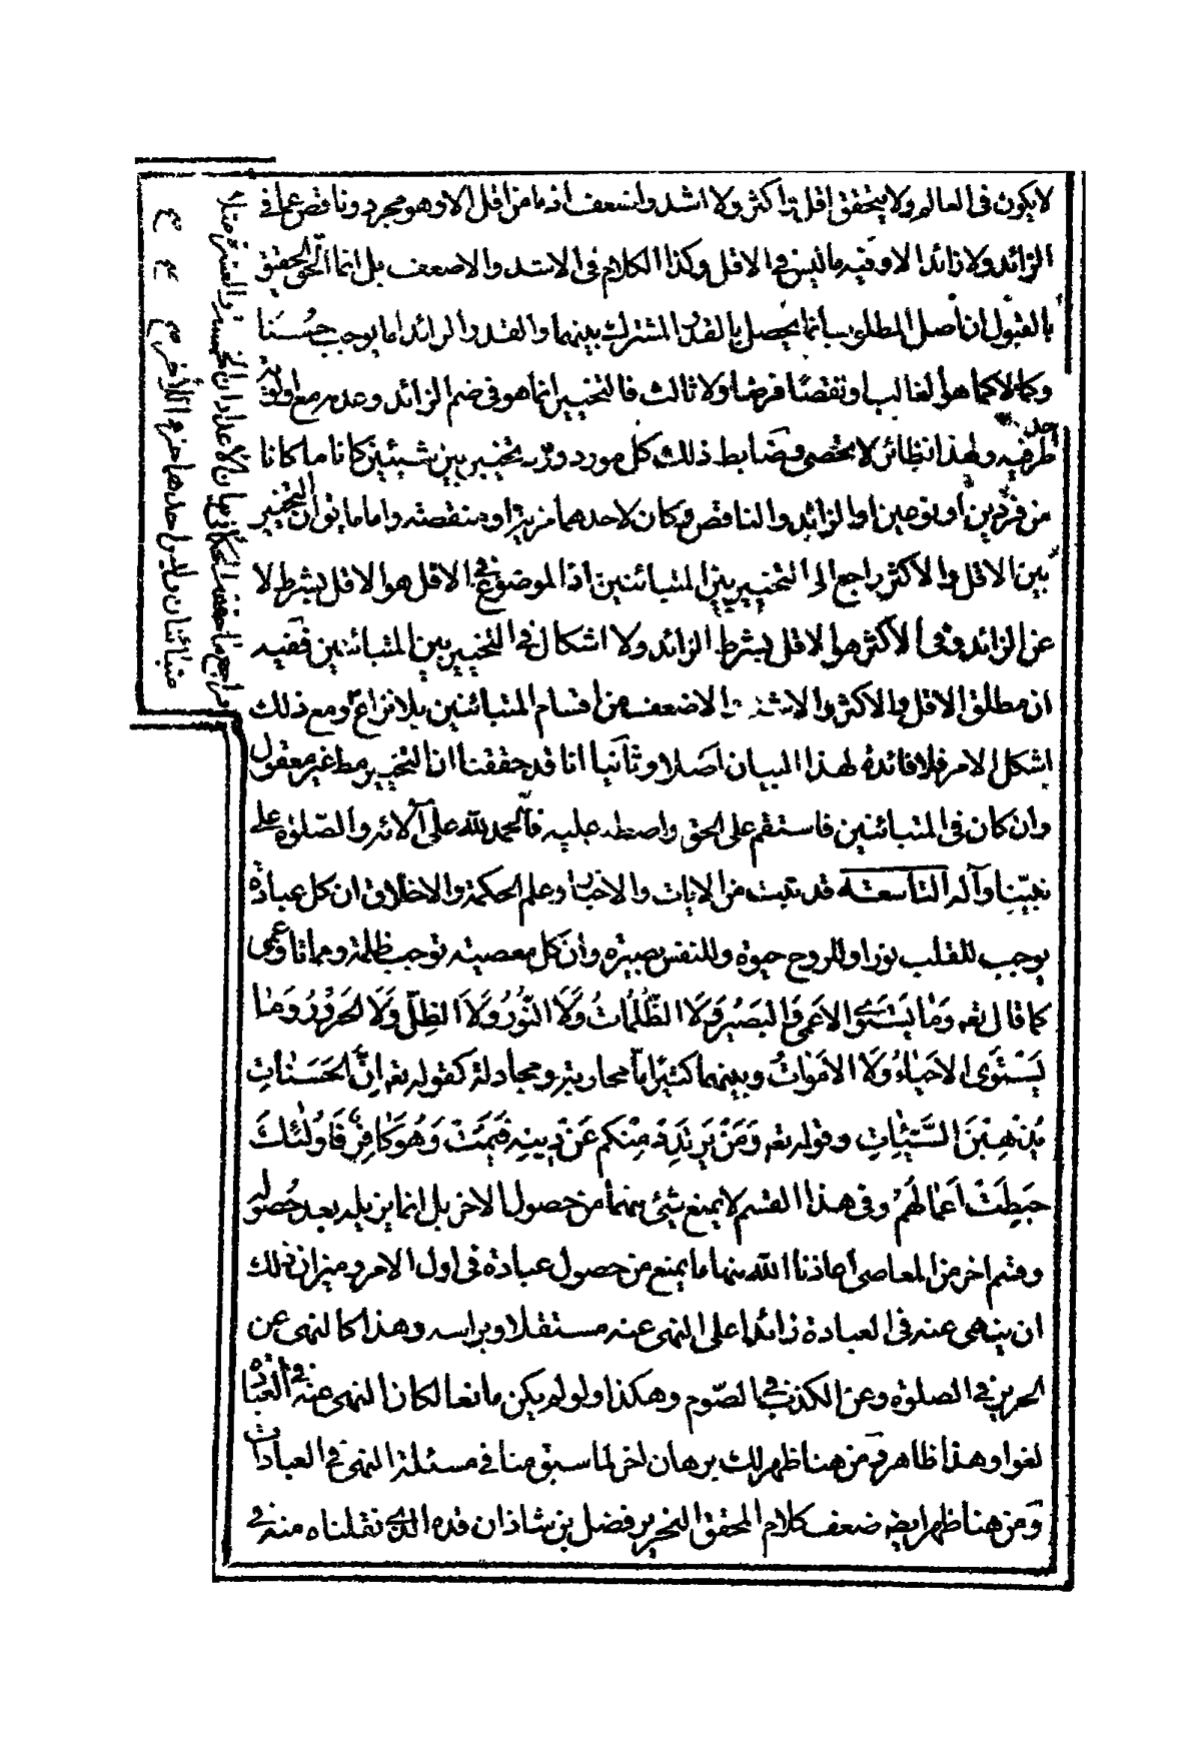 لا يكون فى العالم ولا يتحقق اقل و اكثر ولا اشد واضعف اذ ما من اقل الا وهو مجرد وناقص عما فى
الزائد ولا زائد الا وفيه ما ليس فى الاقل وكذا الكلام فى الاشد والاضعف بل انما الحق الحقيق
بالقبول ان اصل المطلوب انما يحصل بالقدر المشترك بينهما والقدر الزائد اما يوجب حسنا
وكمالا كما هو الغالب او نقصا فرضا ولا ثالث فالتخيير انما هو فى ضم الزائد وعدمه مع اولوية
احد طرفيه ولهذا نظائر لا تحصى وضابط ذلك كل مورد ورد تخيير بين شيئين كانا ما كانا
من فردين او نوعين او الزائد والناقص وكان لاحدهما مزية او منقصة واما ما يق ان التخيير
بين الاقل والاكثر راجع الى التخيير بين المتبائنين اذ الموضوع فى الاقل هو الاقل بشرط لا
عن الزائد وفى الاكثر هو الاقل بشرط الزائد ولا اشكال فى التخيير بين المتبائنين ففيه
ان مطلق الاقل والاكثر والاشد والاضعف من اقسام المتبائنين بلا نزاع ومع ذلك
اشكل الامر فلا فائدة لهذا البيان اصلا وثانيا انا قد حققنا ان التخيير مط غير معقول
وان كان فى المتبائنين فاستقم على الحق واصطبر عليه فالحمد لله على آلائه والصلوة على
نبينا وآله التاسعة قد ثبت من الايات والاخبار وعلم الحكمة والاخلاق ان كل عبادة
يوجب للقلب نورا وللروح حيوة وللنفس بصيرة وان كل معصية توجب ظلمة ومماتا وعمى
كما قال تعه وَمَا يَسْتَوِى الاَعْمى وَالبَصِيْر وَلَا الظُّلُمَاتُ وَلَا النُّوْرُ وَلَا الظِلُّ وَلَا الحَرُوْرُ وَمَا
يَسْتَوِى الاَحْيَاءُ وَلَا الاَمْوَاتُ وبينهما كثيرا ما محاربة ومجادلة كقوله تعه اِنَّ الحَسَنَاتِ
يُذْهِبْنَ السَّيِّئَاتِ وقوله تعه وَمَنْ يَرْتَدِدْ مِنْكم عَنْ دِينِهِ فَيَمُتْ وَهُوَ كَافِرٌ فَاُولٰئِكَ
حَبِطَتْ اَعمَالهُمْ وفى هذا القسم لا يمنع شئ منهما من حصول الاخر بل انما يزيله بعد حصوله
وقسم اخر من المعاصى اعاذنا الله منها ما يمنع من حصول عبادة فى اول الامر وميزان ذلك
ان ينهى عنه فى العبادة زائدا على النهى عنه مستقلا وبراسه وهذا كالنهى عن
الحرير فى الصلوة وعن الكذب فى الصوم وهكذا ولو لم يكن مانعا لكان النهى عنه فى العبادة
لغوا وهذا ظاهر ومن هنا ظهر لك برهان اخر لما سبق منا فى مسئلة النهى فى العبادات
ومن هنا ظهر ايضه ضعف كلام المحقق النحرير فضل بن شاذان قده الذى نقلناه منه فى
متبائنان وليس احدهما جزء اللاخر